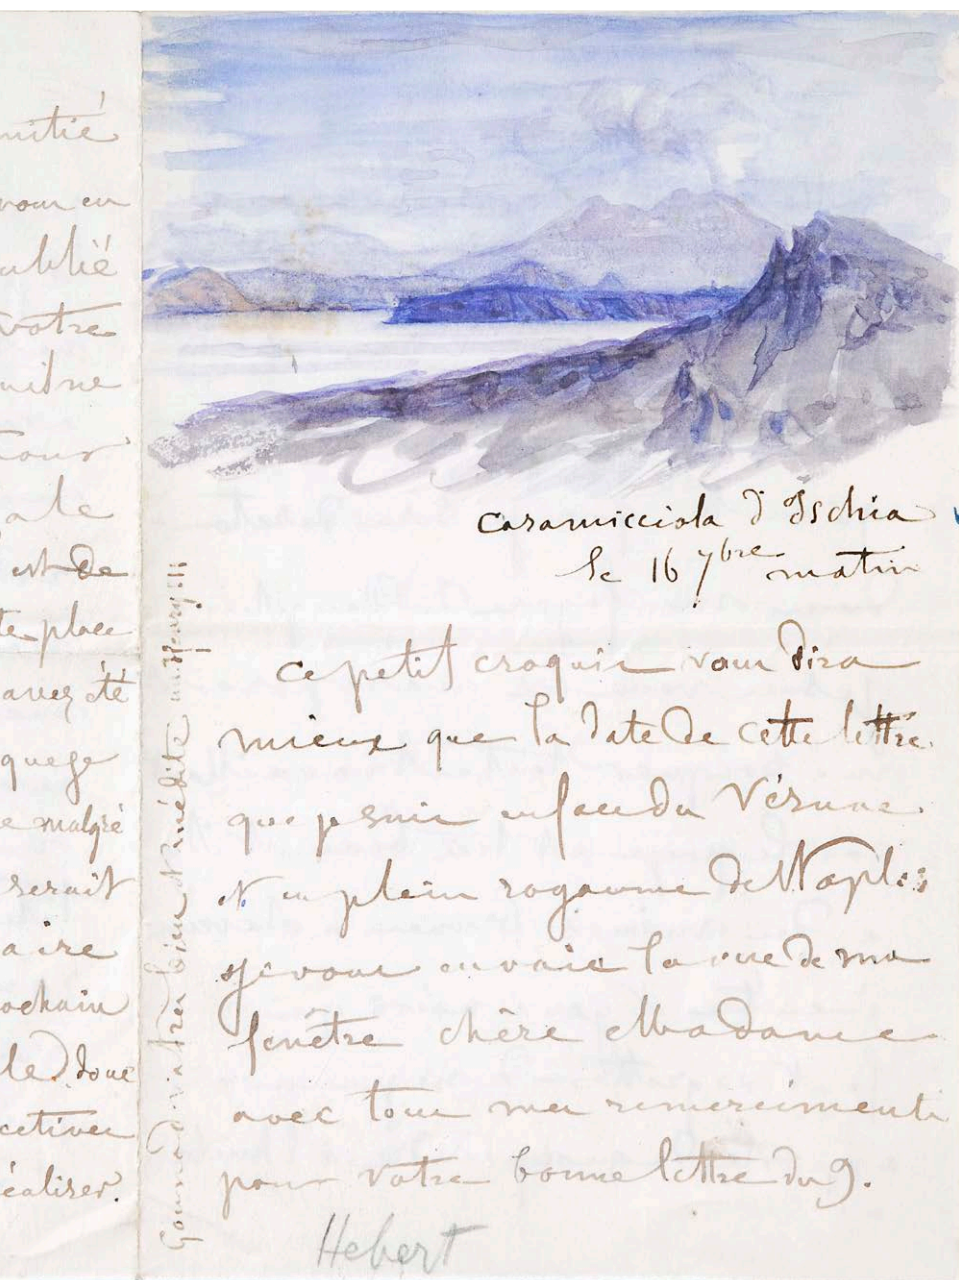 mitié
vous en
ublié
votre
uitne
Tour
ale
est de
te place
avez été
que ge
e malgré
serait
aire
ochain
le) donc
cetives
éaliser.
Casamicciola d'Ischia
le 16 7bre matin
Ce petit croquis vous dira
mieux que la date de cette lettre
que je suis en face du Vésuve
et en plein royaume de Naples
je vous envoie la vue de ma
fenêtre chère Madame
avec tous mes remerciments
pour votre bonne lettre du 9.
Gounod
bien
inédite
Hebert